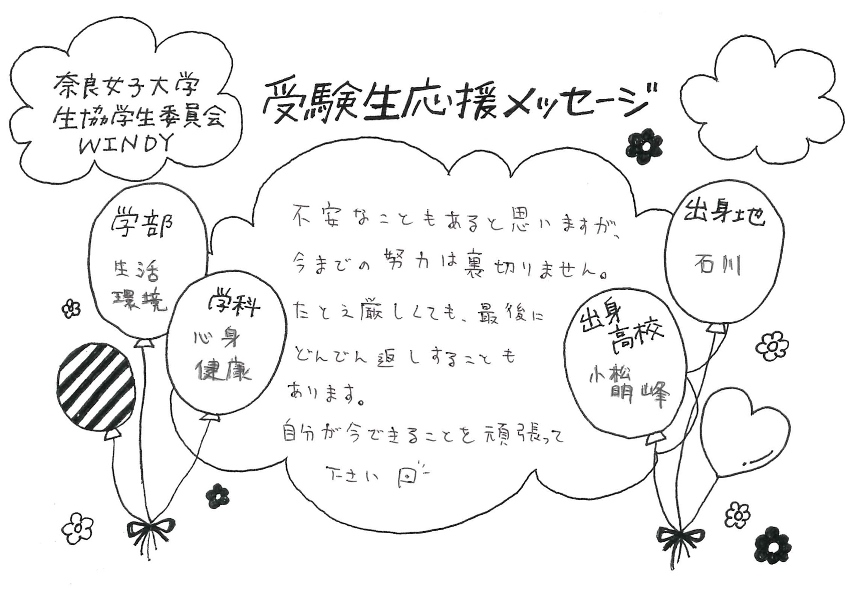 奈良女子大学
生協学生委員会
WINDY
受験生応援メッセージ
学部
生活
環境
学科
心身
健康
不安なこともあると思いますが、
今までの努力は裏切りません。
たとえ厳しくても、最後に
どんでん返しすることも
あります。
自分が今できることを頑張って
下さい
出身地
石川
出身
高校
小松
明峰